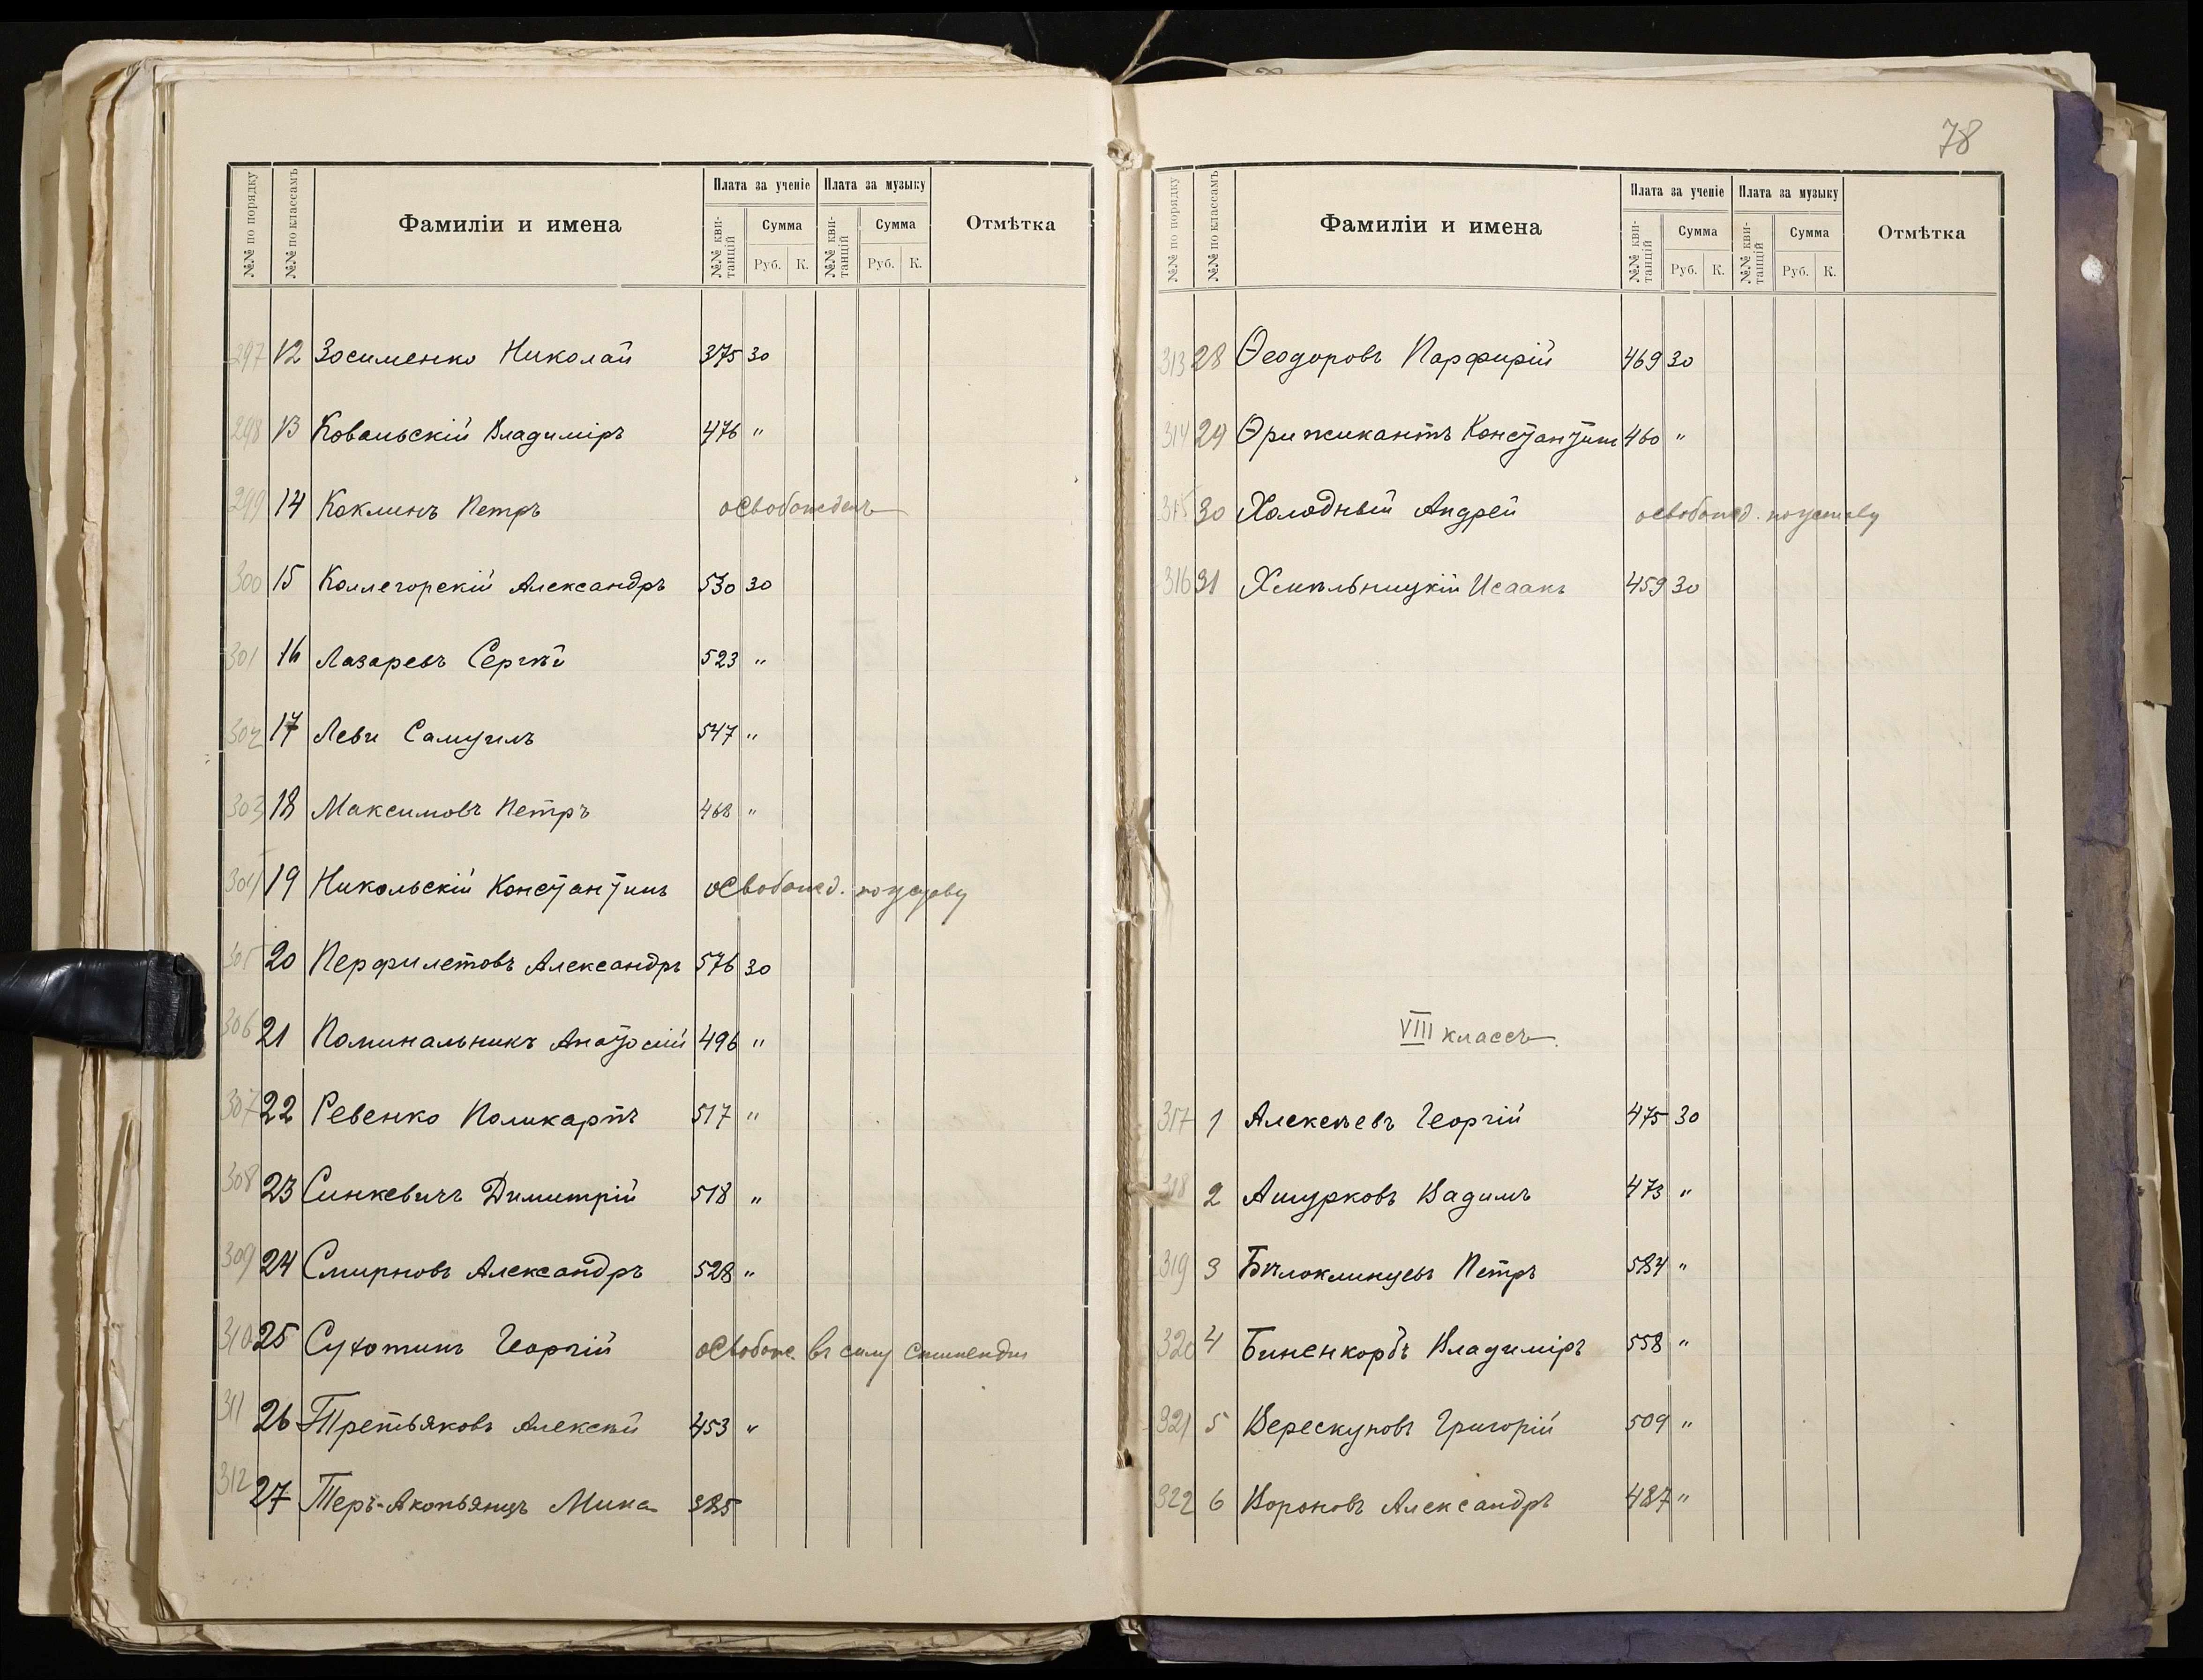 №№ по порядку №№ по классамъ Фамиліи и имена Плата за ученіе Плата за музыку Отмѣтка
№№ кви-танцій Сумма №№ кви-танцій Сумма
Руб. К. Руб. К.
297 12 Зосименко Николай 375 30
298 13 Ковальскій Владиміръ 476 "
299 14 Коклинъ Петръ освобожденъ
300 15 Коллегорскій Александръ 530 30
301 16 Лазаревъ Сергѣй 523 "
302 17 Леви Самуилъ 547 "
303 18 Максимовъ Петръ 468 "
304 19 Никольскій Константинъ освобожд. по уставу
305 20 Перфилетовъ Александръ 576 30
306 21 Поминальникъ Анатолій 496 "
307 22 Ревенко Поликарпъ 517 "
308 23 Синкевичъ Димитрій 518 "
309 24 Смирновъ Александръ 528 "
310 25 Сухотинъ Георгій освобож. въ силу стипендіи
311 26 Третьяковъ Алексѣй 453 "
312 27 Теръ-Акопьянцъ Мика 385
78
№№ по порядку №№ по классамъ Фамиліи и имена Плата за ученіе Плата за музыку Отмѣтка
№№ кви-танцій Сумма №№ кви-танцій Сумма
Руб. К. Руб. К.
313 28 Ѳеодоровъ Парфирій 469 30
314 29 Ѳришкантъ Константинъ 460 "
315 30 Холодный Андрей освобожд. по уставу
316 31 Хмѣльницкій Исаакъ 459 30
VIII классъ.
317 1 Алексѣевъ Георгій 475 30
318 2 Ашурковъ Вадимъ 473 "
319 3 Бѣлоклинцевъ Петръ 584 "
320 4 Биненкорбъ Владиміръ 558 "
321 5 Верескуновъ Григорій 509 "
322 6 Вороновъ Александръ 487 "